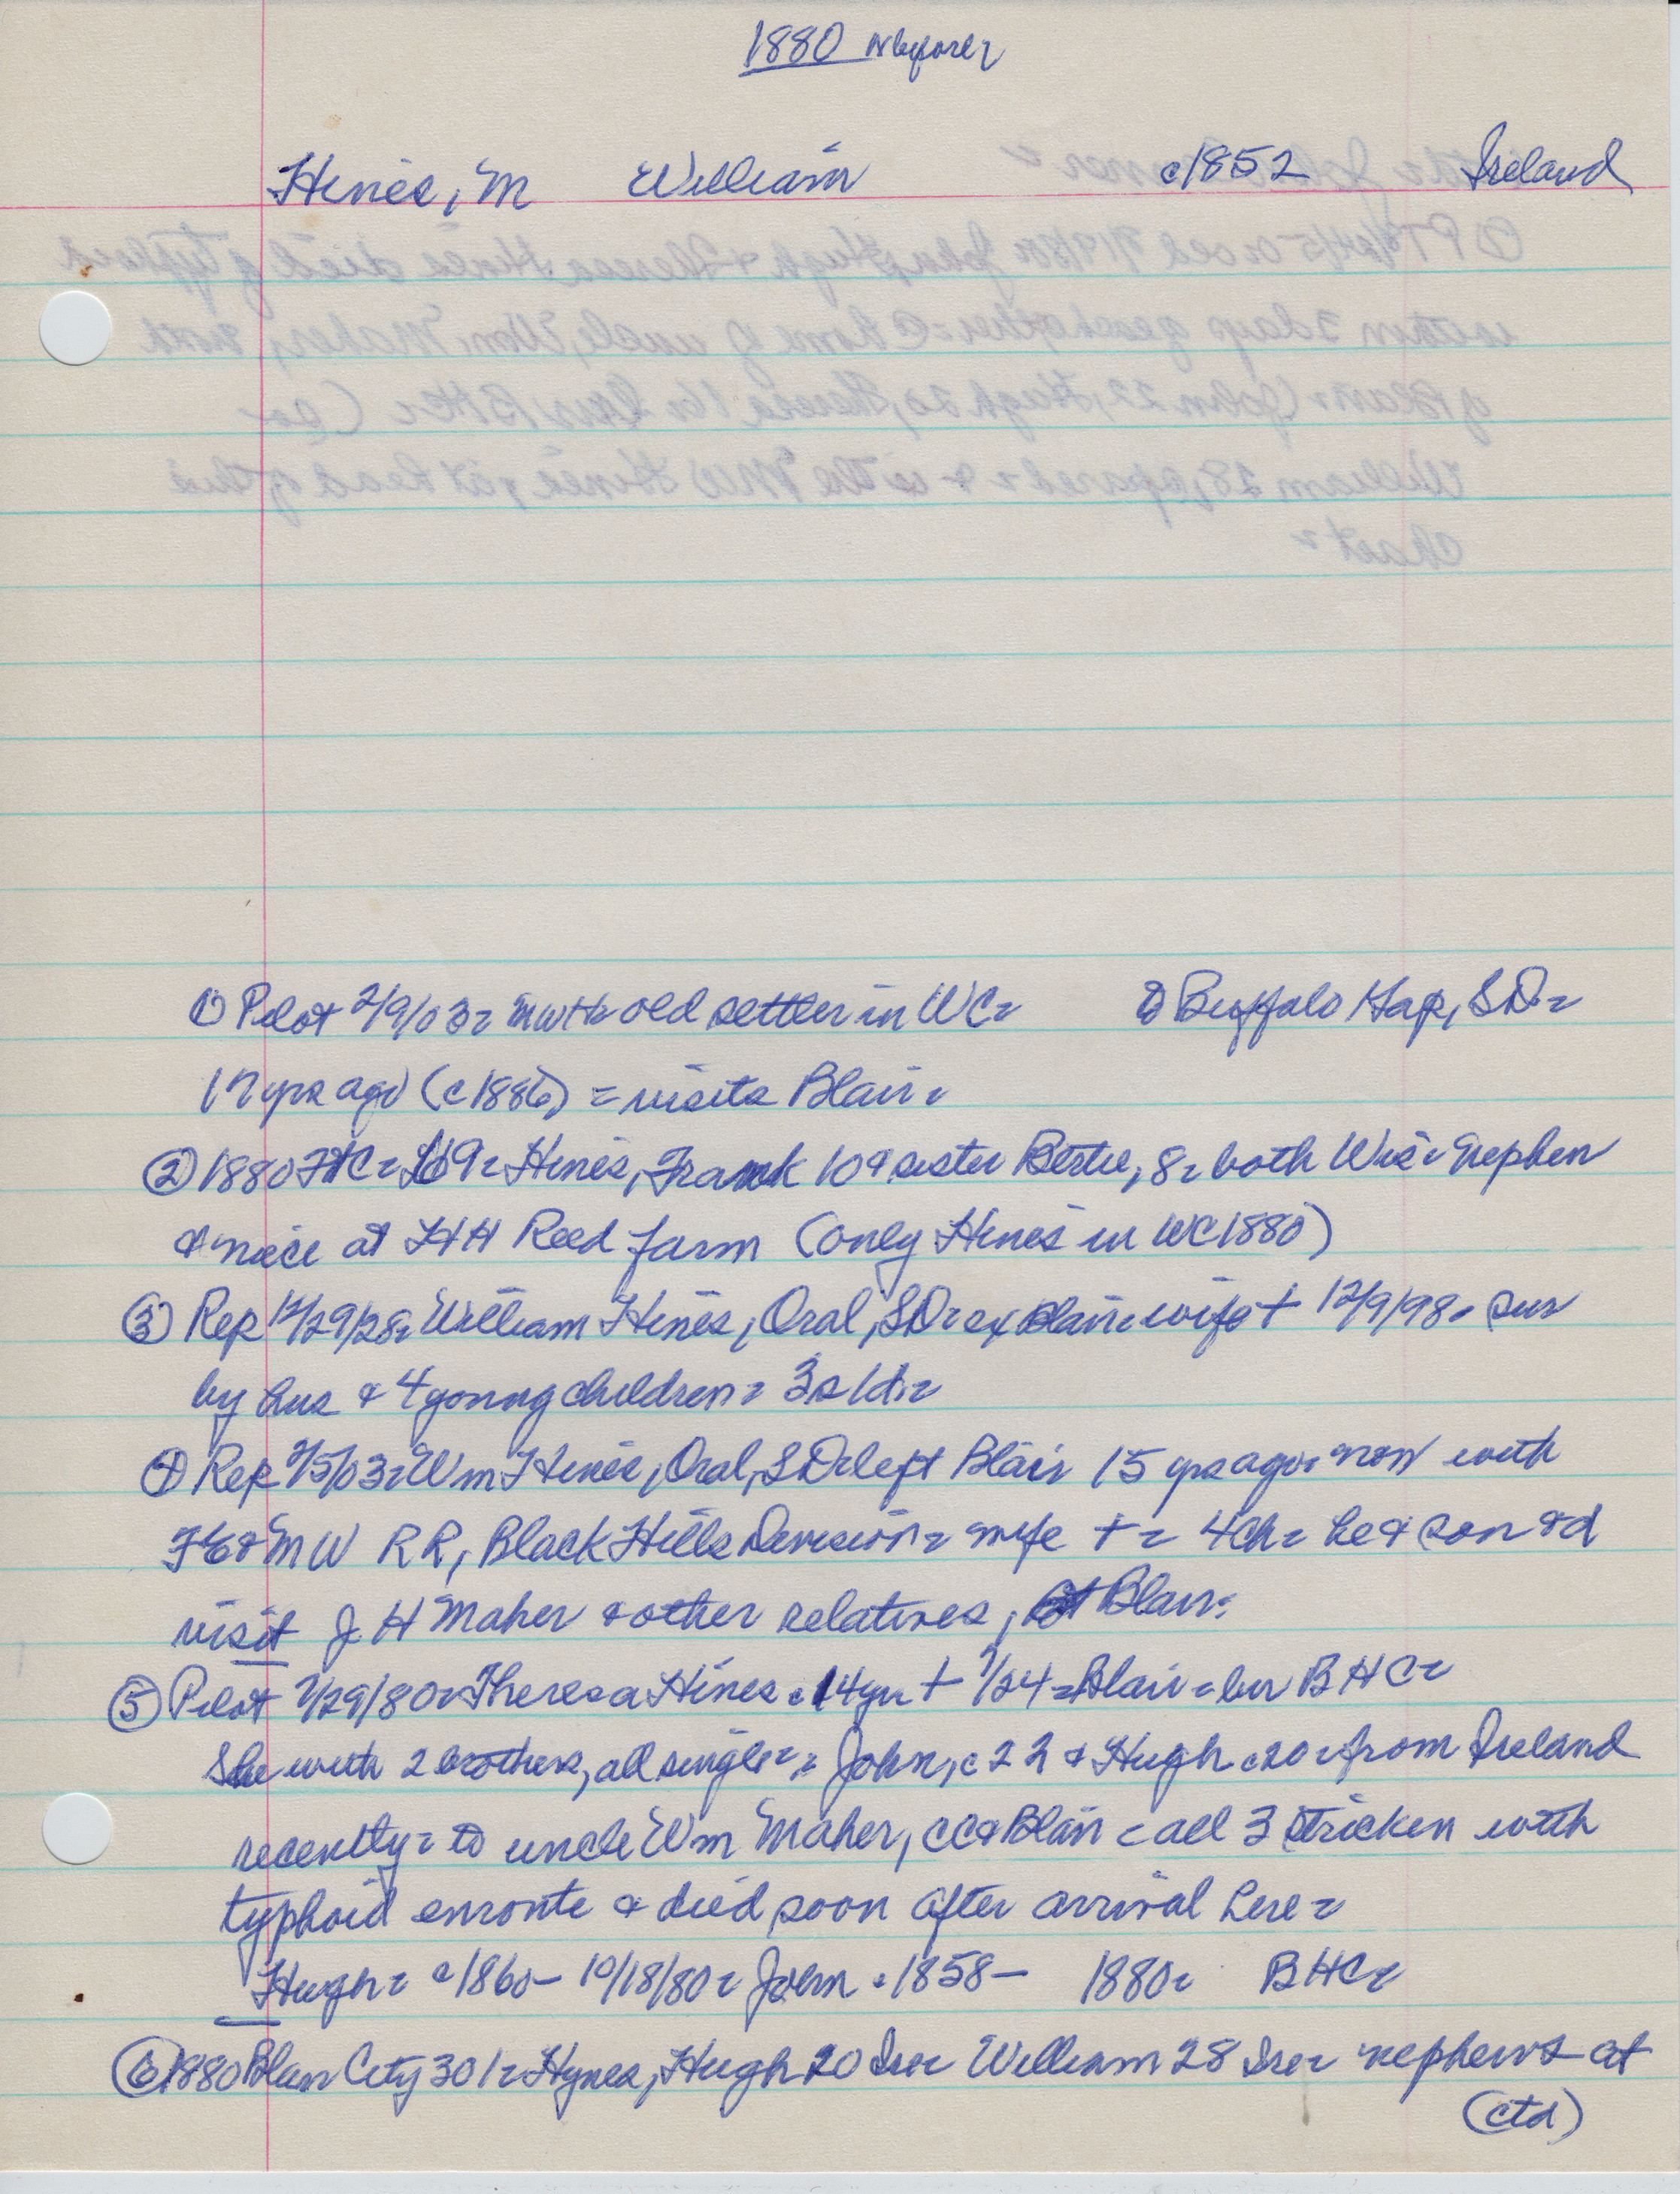 1880 or before
Hines, M William c1852 Ireland
① Pilot 2/9/03 = MWH = old settler in WC = to Buffalo Gap, SD =
17 yrs ago (c1886) = visits Blair =
② 1880 FtC = 169 = Hines, Frank 10 & sister Bertie, 8 = both Wis = nephew
& niece at HH Reed farm (only Hines in WC 1880)
③ Rep 12/29/98 = William Hines, Oral, SD = ex Blair = wife + 12/9/98 = sur
by hus & 4 young children = 3s 1d =
④ Rep 2/5/03 = Wm Hines, Oral, SD = left Blair 15 yrs ago = now with
FE & MW RR, Black Hills Division = wife + = 4 ch = he & son & d
visit J H Maher & other relatives, at Blair =
⑤ Pilot 7/29/80 = Theresa Hines c14 yr + 7/24 = Blair = bur BHC =
She with 2 brothers, all single = John, c22 & Hugh c20 = from Ireland
recently = to uncle Wm Maher, CC & Blair = all 3 stricken with
typhoid enroute & died soon after arrival here =
Hugh = c1860 - 10/18/80 = John c1858 - 1880 = BHC =
⑥ 1880 Blair City 301 = Hynes, Hugh 20 Ire = William 28 Ire = nephews at
(ctd)